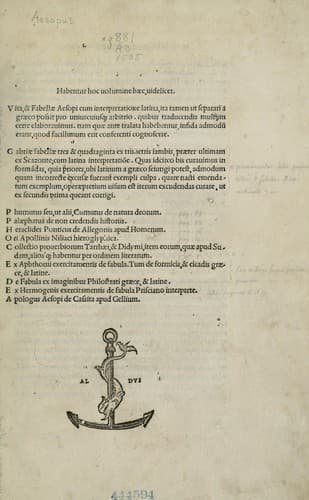 Aesopus
881
A5
1505
Habentur hoc uolumine hæc, uidelicet.
Vita, & Fabellæ Aesopi cum interpretatione latina, ita tamen ut separari a
græco possit pro uniuscuiusq; arbitrio. quibus traducendis multum
certe elaborauimus. nam quæ ante tralata habebantur, infida admodum
erant, quod facillimum erit conferenti cognoscere.
Gabriæ fabellæ tres & quadraginta ex trimetris iambis, præter ultimam
ex Scazonte, cum latina interpretatiōe. Quas idcirco bis curauimus in
formādas, quia priores, ubi latinum a græco seiungi potest, admodum
quam incorrecte excusæ fuerant exempli culpa. quare nacti emenda-
tum exemplum, operæpretium uisum est iterum excudendas curare, ut
ex secundis prima queant corrigi.
Phurnutus seu, ut alii, Curnutus de natura deorum.
Palæphatus de non credendis historiis.
Heraclides Ponticus de Allegoriis apud Homerum.
Ori Apollinis Niliaci hieroglyphica.
Collectio prouerbiorum Tarrhæi, & Didymi, item eorum, quæ apud Su-
dam, aliosq; habentur per ordinem literarum.
Ex Aphthonii exercitamentis de fabula. Tum de formicis, & cicadis græ-
ce, & latine.
De Fabula ex imaginibus Philostrati græce, & latine.
Ex Hermogenis exercitamentis de fabula Prisciano interprete.
Apologus Aesopi de Cassita apud Gellium.
AL DVS
444594